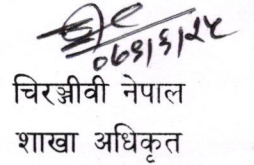 ०७९/६/२५
चिरञ्जीवी नेपाल
शाखा अधिकृत